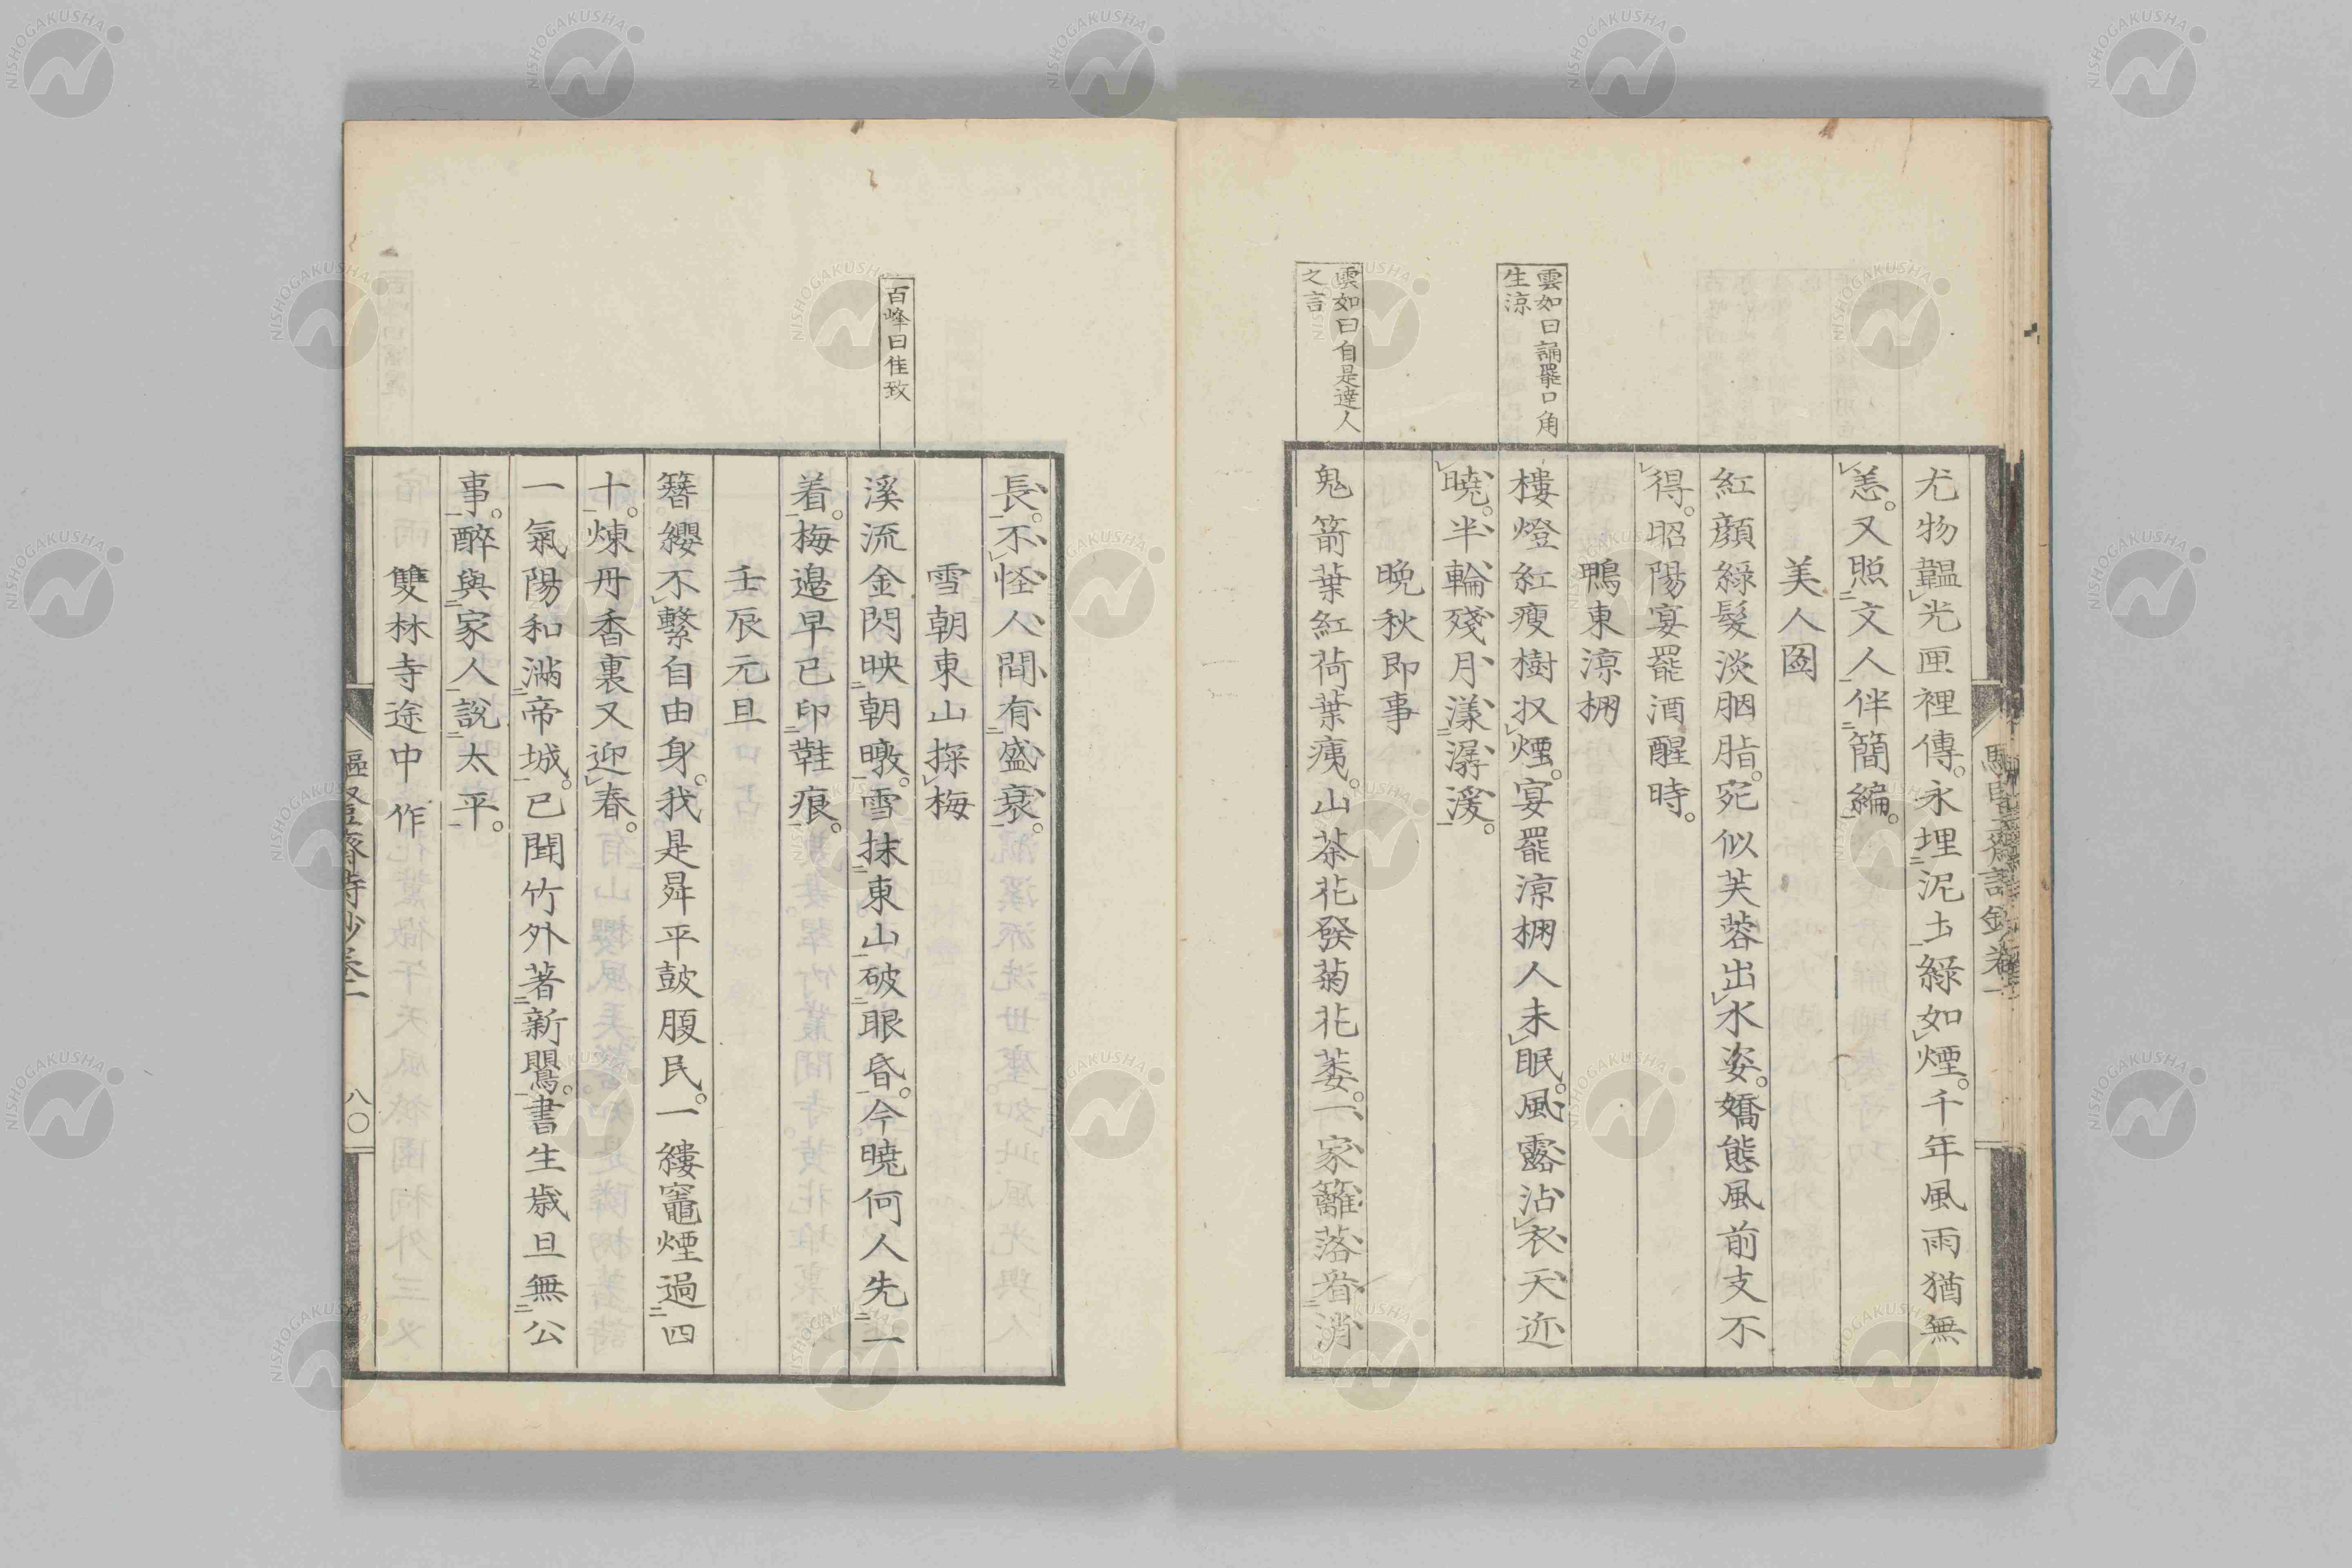 尤物韞光匣裡傳永埋泥土綠如煙千年風雨猶無
恙又照文人伴簡編
美人圖
紅顏綠髮淡胭脂宛似芙蓉出水姿嬌態風前支不
得昭陽宴罷酒醒時
鴨東涼棚
雲如曰誦罷口角
生涼
樓燈紅瘦樹収煙宴罷涼棚人未眠風露沾衣天近
曉半輪殘月漾潺湲
晚秋即事
雲如曰自是達人
之言
鬼箭葉紅荷葉痍山茶花發菊花萎一家籬落看消
長不怪人間有盛衰
雪朝東山探梅
百峰曰佳致
溪流金閃映朝暾雪抹東山破眼昏今曉何人先一
着梅邊早已印鞋痕
壬辰元旦
簪纓不繫自由身我是昇平鼓腹民一縷竈煙過四
十煉丹香裏又迎春
一氣陽和滿帝城已聞竹外著新鸎書生歲旦無公
事醉與家人說太平
雙林寺途中作
八〇
NISHOGAKUSHA